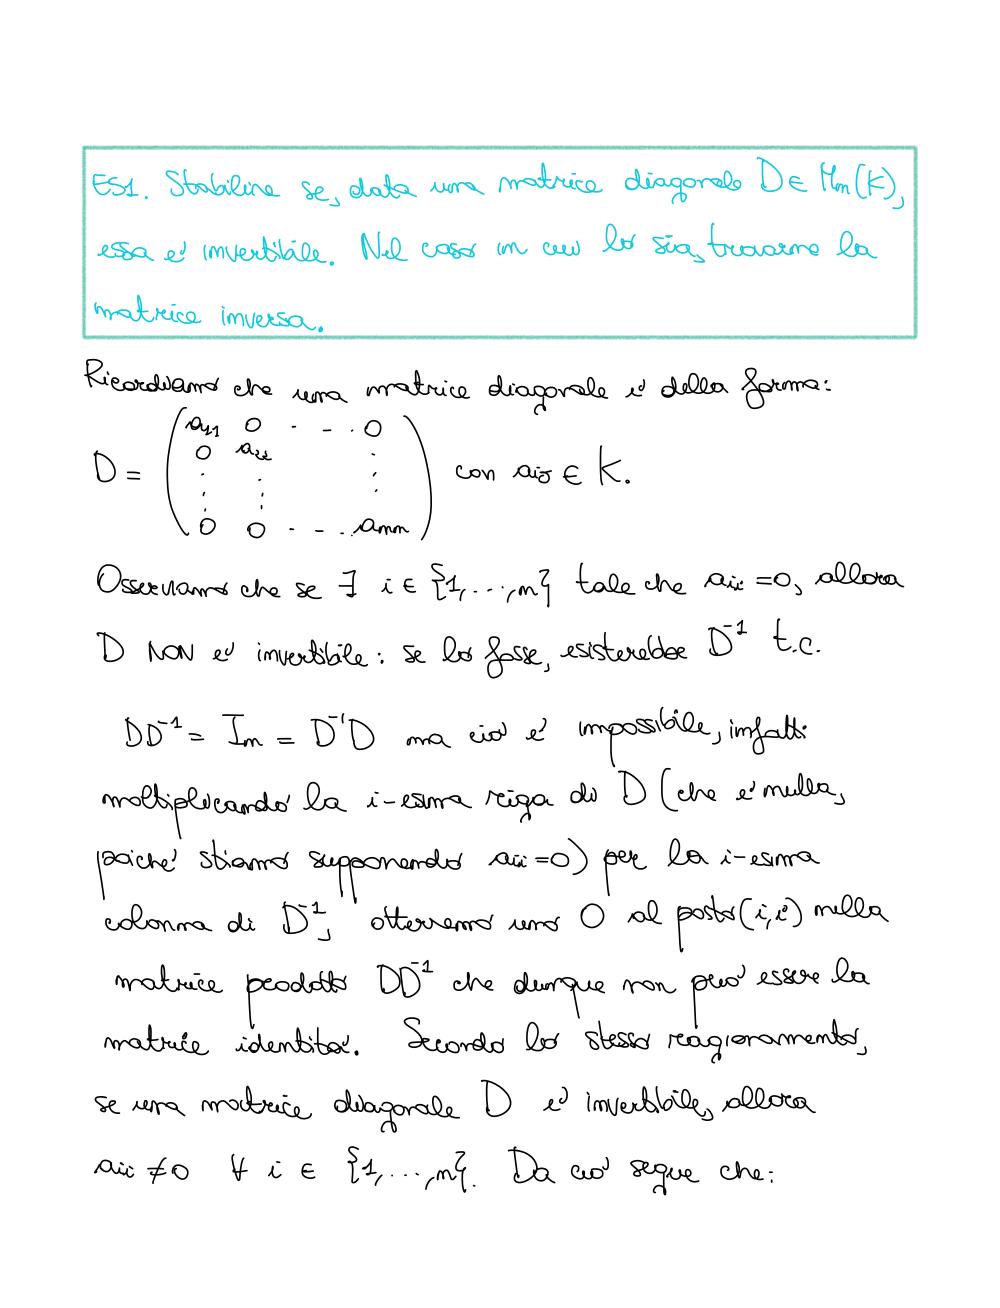 ES1. Stabilire se, data una matrice diagonale D ∈ Mn(K),
essa e' invertibile. Nel caso in cui lo sia, trovarne la
matrice inversa.
Ricordiamo che una matrice diagonale e' della forma:
D = ( a11 0 · - . . 0
0 a22 :
: : :
0 0 · - . . ann ) con aij ∈ K.
Osserviamo che se ∃ i ∈ {1, ..., n} tale che aii = 0, allora
D NON e' invertibile: se lo fosse, esisterebbe D⁻¹ t.c.
DD⁻¹ = In = D⁻¹D ma cio' e' impossibile, infatti
moltiplicando la i-esima riga di D (che e' nulla,
poiche' stiamo supponendo aii = 0) per la i-esima
colonna di D⁻¹, otterremo uno 0 al posto (i,i) nella
matrice prodotto DD⁻¹ che dunque non puo' essere la
matrice identita'. Secondo lo stesso ragionamento,
se una matrice diagonale D e' invertibile, allora
aii ≠ 0 ∀ i ∈ {1, ..., n}. Da cio' segue che: